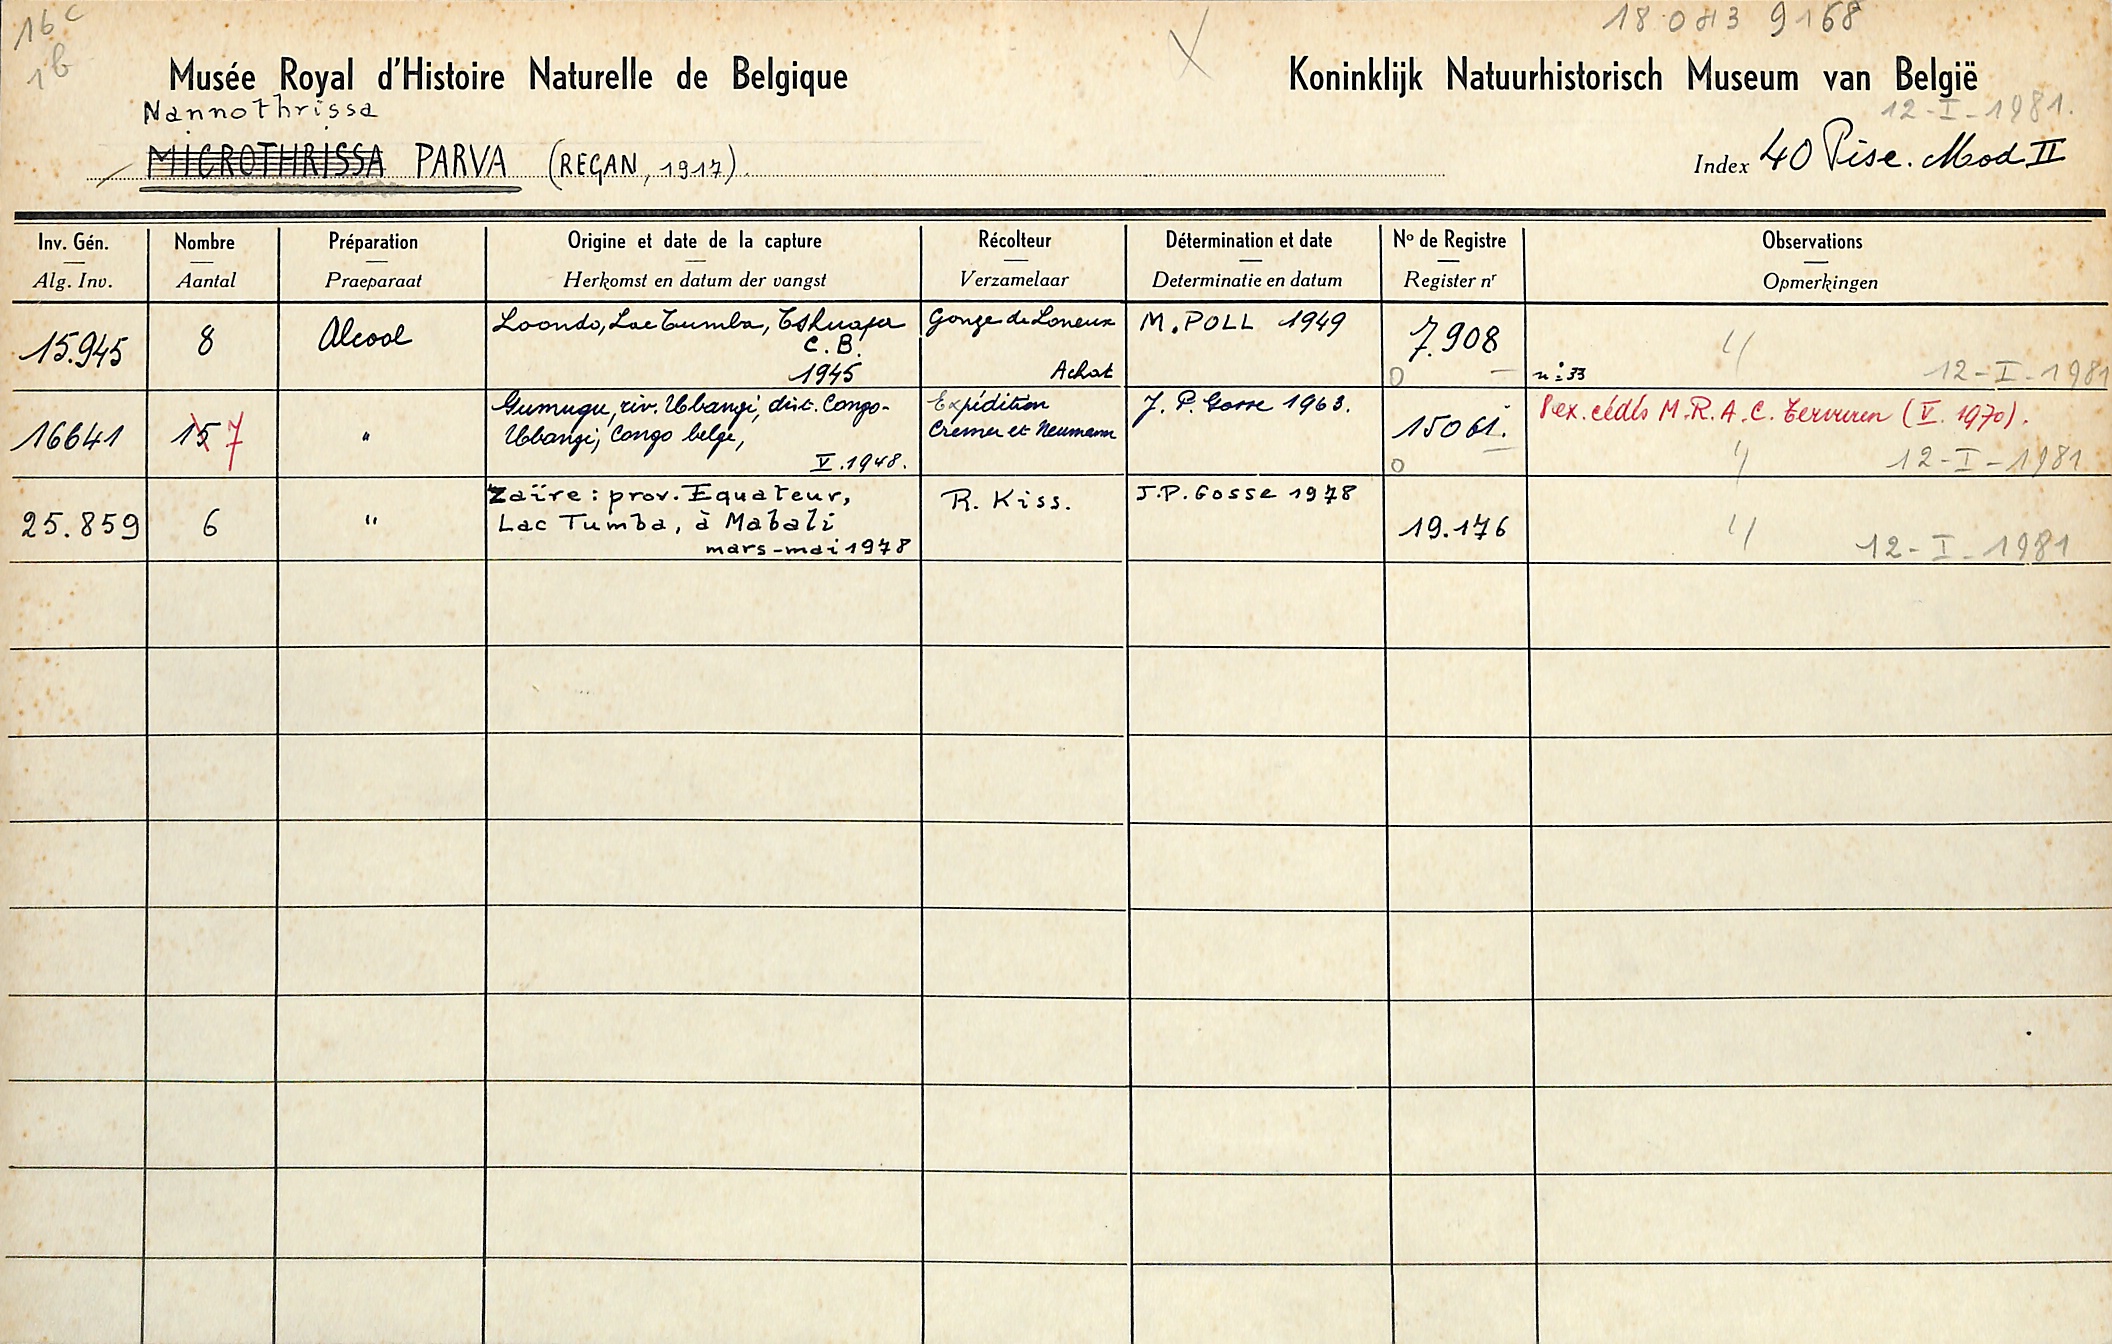 16 c
1b
18 0813 9168
Musée Royal d'Histoire Naturelle de Belgique
Koninklijk Natuurhistorisch Museum van België
Nannothrissa
12-I-1981.
MICROTHRISSA PARVA (REGAN, 1917).
Index 40 Pisc. Mod II
Inv. Gén. Nombre Préparation Origine et date de la capture Récolteur Détermination et date No de Registre Observations
Alg. Inv. Aantal Praeparaat Herkomst en datum der vangst Verzamelaar Determinatie en datum Register nr Opmerkingen
15.945 8 Alcool Loondo, Lac Tumba, Tshuapa Gonze de Loneux M. POLL 1949 7.908
C.B.
1945 Achat O n: 33 12-I-1981
16641 15 7 " Gumugu, riv. Ubangi, dist. Congo- Expédition J. P. Gosse 1963. 15061. 8 ex. cédés M.R.A.C. Tervuren (V. 1970).
Ubangi, Congo belge, Cremer et Neumann
V.1948. O 12-I-1981
25.859 6 " Zaïre: prov. Equateur, R. Kiss. J.P. Gosse 1978 19.176
Lac Tumba, à Mabali
mars-mai 1978 12-I-1981